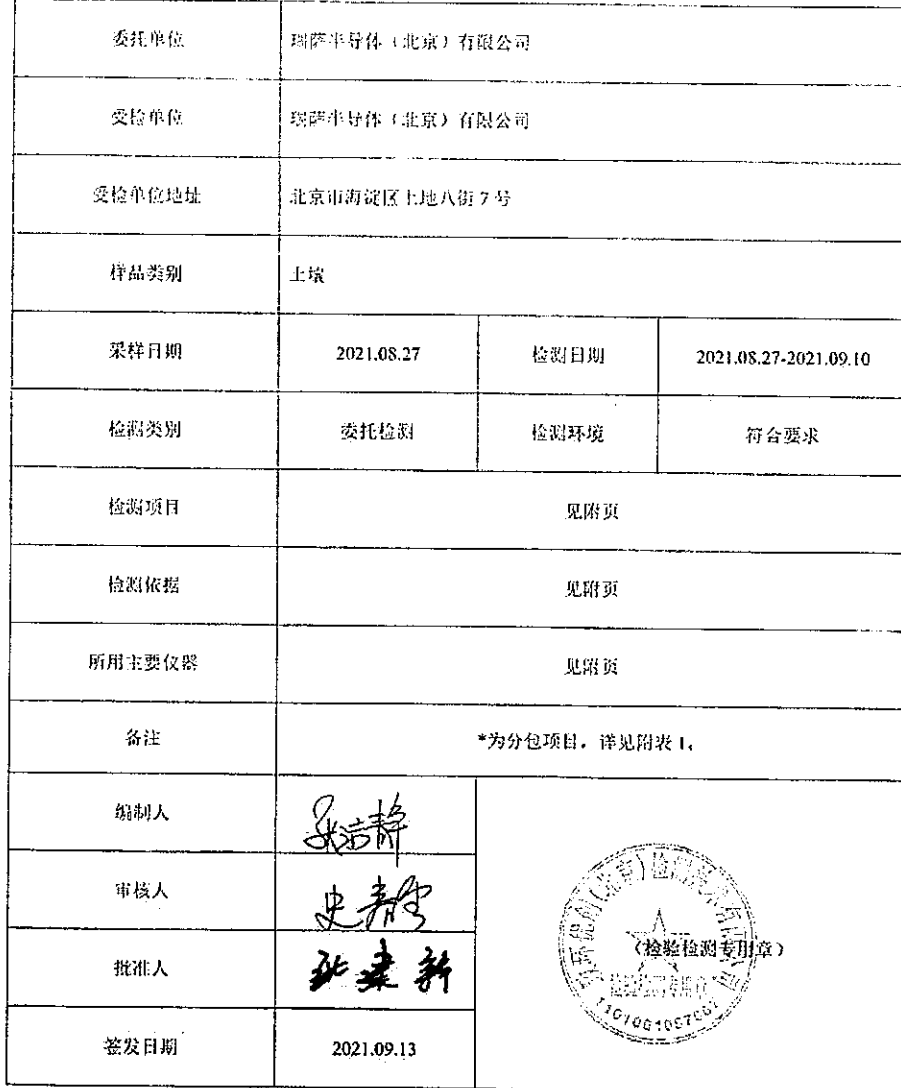 委托单位 瑞萨半导体（北京）有限公司
受检单位 瑞萨半导体（北京）有限公司
受检单位地址 北京市海淀区上地八街 7 号
样品类别 土壤
采样日期 2021.08.27 检测日期 2021.08.27-2021.09.10
检测类别 委托检测 检测环境 符合要求
检测项目 见附页
检测依据 见附页
所用主要仪器 见附页
备注 *为分包项目，详见附表 1。
编制人
审核人 史
批准人 建新
（检验检测专用章）
检验检测专用章
签发日期 2021.09.13